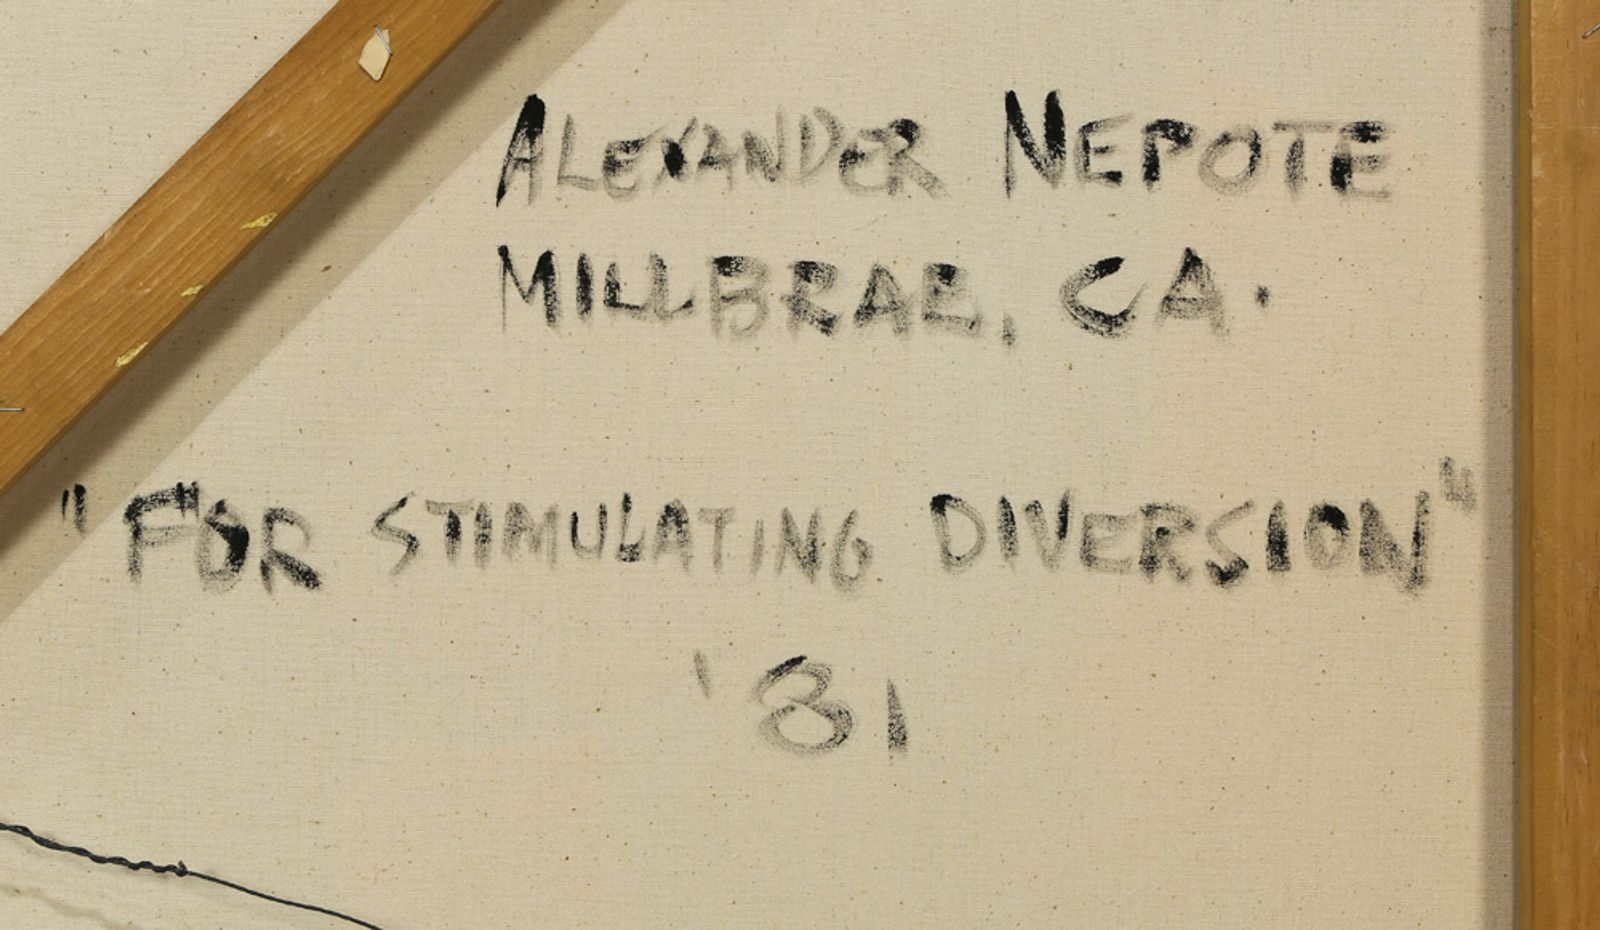 ALEXANDER NEPOTE
MILLBRAE, CA.
"FOR STIMULATING DIVERSION"
'81